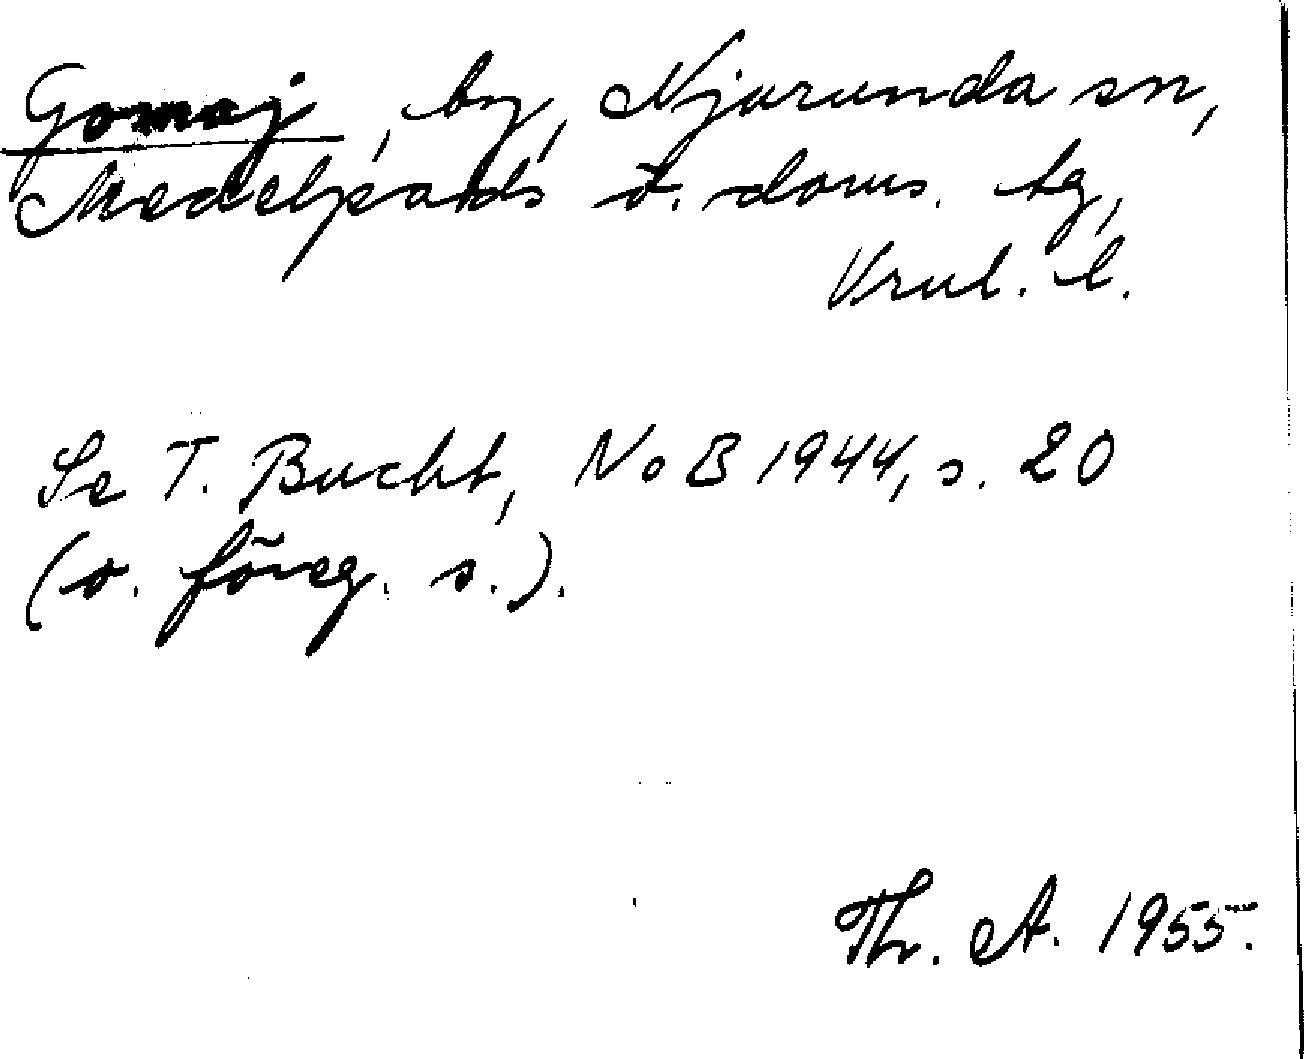 Gomaj, by, Njurunda sn,
Medelpads ö. doms. tg,
Vrnl. l.
Se T. Bucht, NoB 1944, s. 20
(o. föreg. s.).
Th. A. 1955.